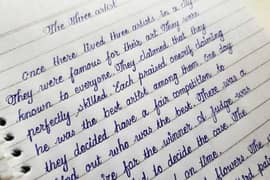 The three artist
Once there lived three artists in a city.
They were famous for their art. They were
known to everyone. They claimed that they
perfectly skilled. Each praised oneself, claiming
he was the best artist among them. One day
they decided have a fair competition to
out who is the best. There was a
for the winner. A judge was
to decide the case. The
on time.
flowers. The